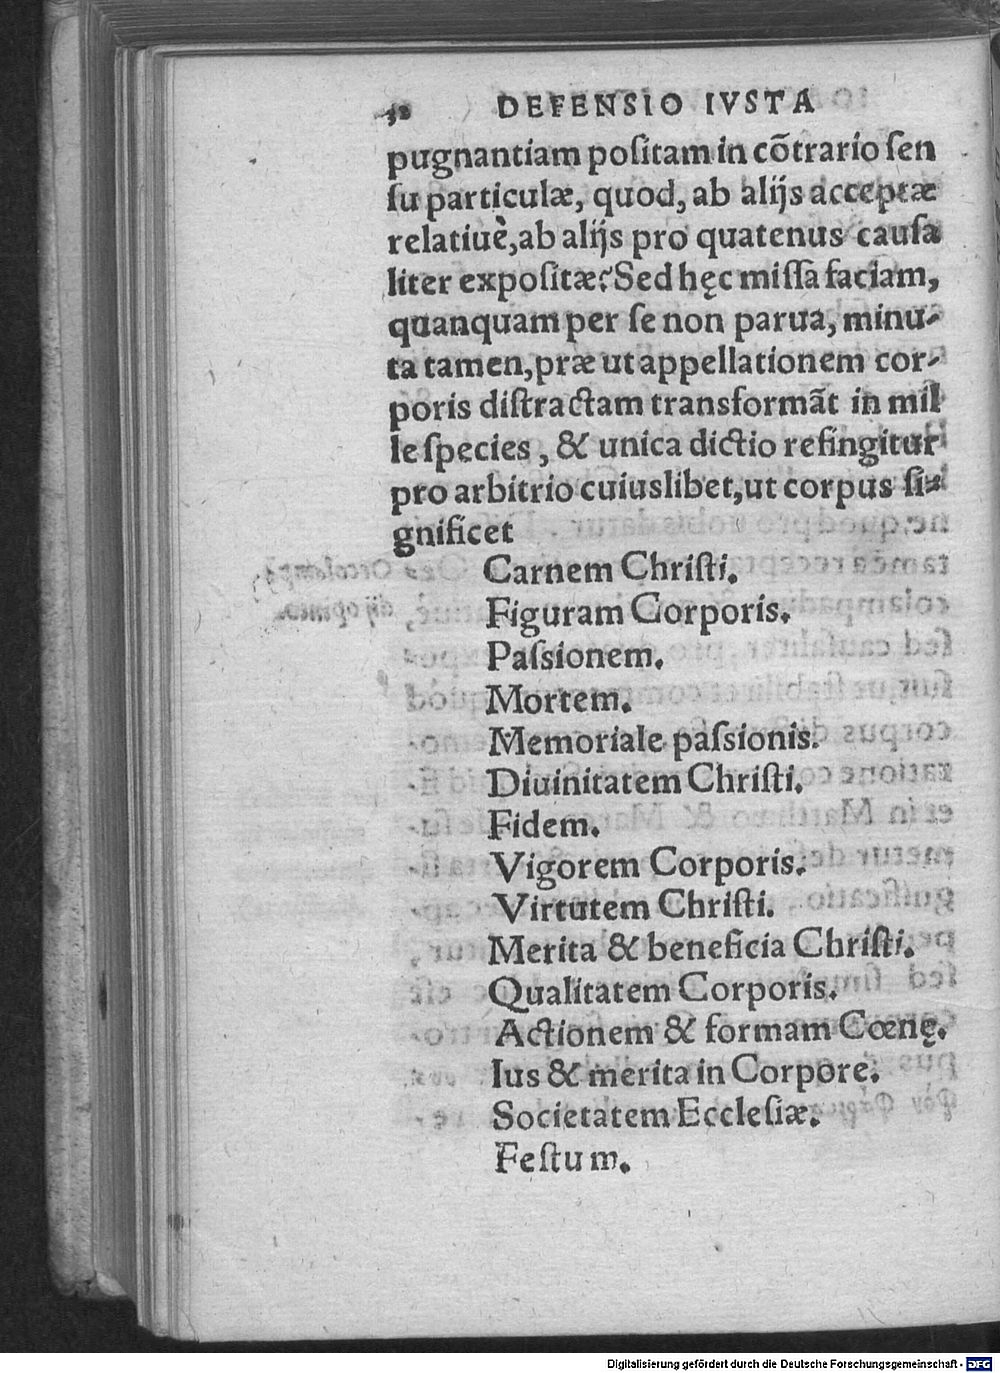 DEFENSIO IVSTA
pugnantiam positam in cõtrario sen
su particulæ, quod, ab alijs acceptæ
relatiuè, ab alijs pro quatenus causa
liter expositæ? Sed hęc missa faciam,
quanquam per se non parua, minu-
ta tamen, præ ut appellationem cor-
poris distractam transformãt in mil
le species, & unica dictio refingitur
pro arbitrio cuiuslibet, ut corpus si-
gnificet
Carnem Christi.
Figuram Corporis.
Passionem.
Mortem.
Memoriale passionis.
Diuinitatem Christi.
Fidem.
Vigorem Corporis.
Virtutem Christi.
Merita & beneficia Christi.
Qualitatem Corporis.
Actionem & formam Cœnę.
Ius & merita in Corpore.
Societatem Ecclesiæ.
Festum.
Digitalisierung gefördert durch die Deutsche Forschungsgemeinschaft - DFG